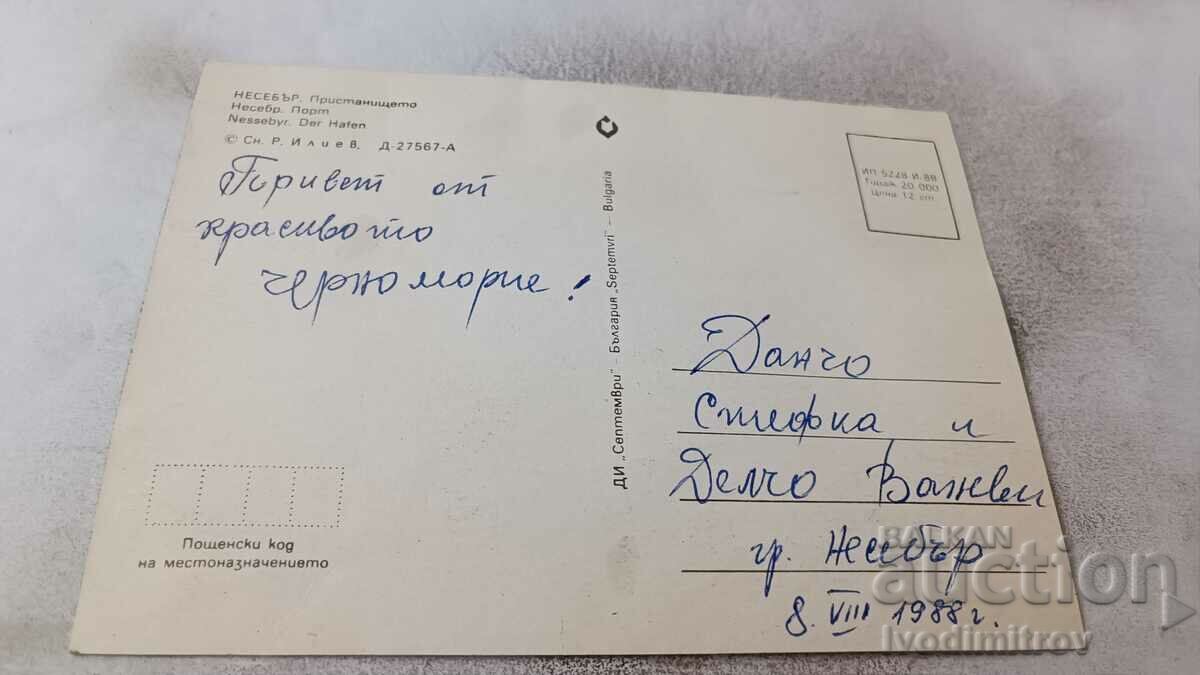 НЕСЕБЪР. Пристанището
Несебр. Порт
Nessebyr. Der Hafen
© Сн. Р. Илиев, Д-27567-А
Поривет от
красивото
черноморие!
ДИ „Септември" – България „Septemvri" – Bulgaria
ИП 5228 И.88
Тираж 20 000
Цена 12 ст
Данчо
Стефка и
Делчо
гр. Несебър
8. VIII 1988 г.
Пощенски код
на местоназначението
BALKAN
auction
Ivodimitrov